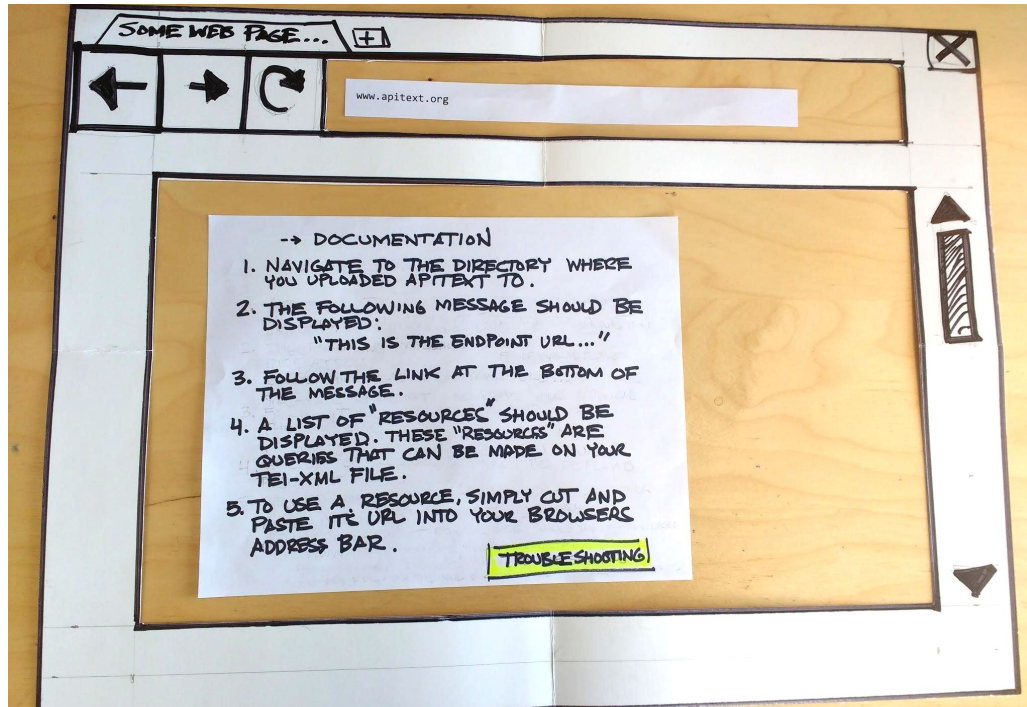 SOME WEB PAGE...
www.apitext.org
--> DOCUMENTATION
1. NAVIGATE TO THE DIRECTORY WHERE
YOU UPLOADED APITEXT TO.
2. THE FOLLOWING MESSAGE SHOULD BE
DISPLAYED:
"THIS IS THE ENDPOINT URL..."
3. FOLLOW THE LINK AT THE BOTTOM OF
THE MESSAGE.
4. A LIST OF "RESOURCES" SHOULD BE
DISPLAYED. THESE "RESOURCES" ARE
QUERIES THAT CAN BE MADE ON YOUR
TEI-XML FILE.
5. TO USE A RESOURCE, SIMPLY CUT AND
PASTE ITS URL INTO YOUR BROWSERS
ADDRESS BAR.
TROUBLESHOOTING